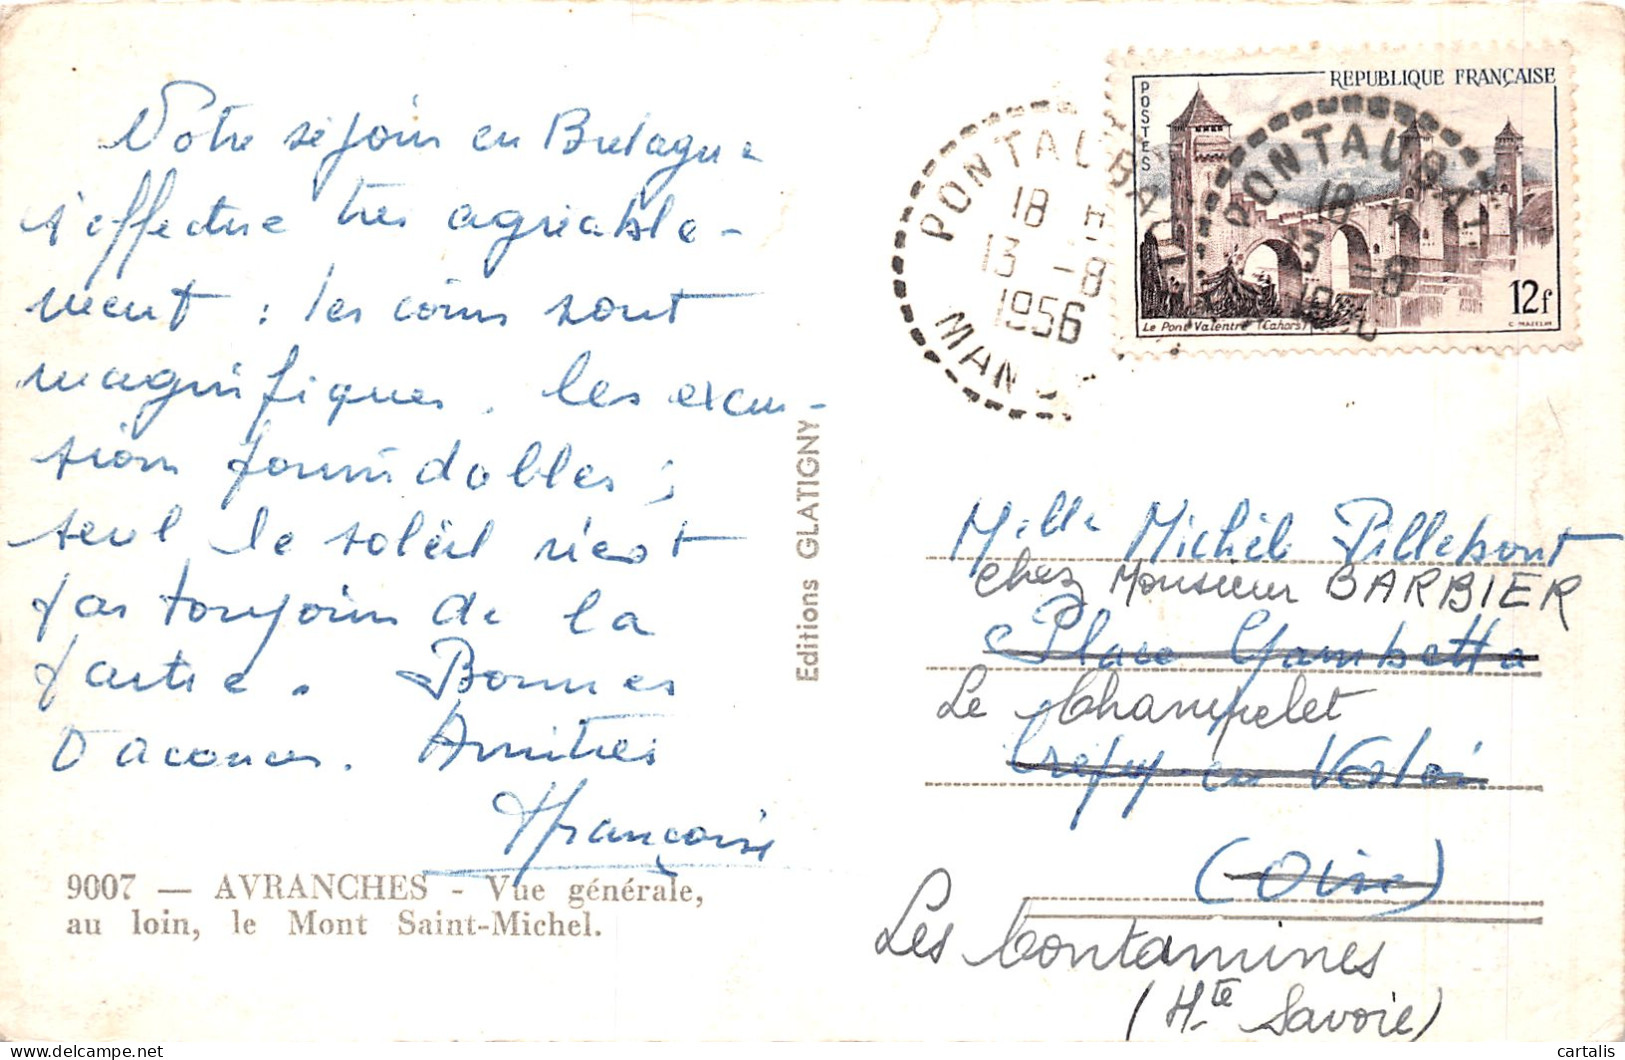 Notre séjour en Bretagne
s'effectue très agréable-
ment : les coins sont
magnifiques, les excur-
sion formidables ;
seul le soleil n'est
pas toujours de la
partie. Bonnes
Vacances. Amitiés
Françoise
9007 — AVRANCHES - Vue générale,
au loin, le Mont Saint-Michel.
Editions GLATIGNY
REPUBLIQUE FRANÇAISE
POSTES
Le Pont Valentré (Cahors)
12f
C. MAZELIN
PONTAUBAULT
18 H
13 -8
1956
MANCHE
PONTAUBA
18 H
13 -8
1956
Melle Michèle Pillebout
chez Monsieur BARBIER
Place Gambetta
Le Champelet
Crépy en Valois
(Oise)
Les Contamines
(Hte Savoie)
cartalis
delcampe.net